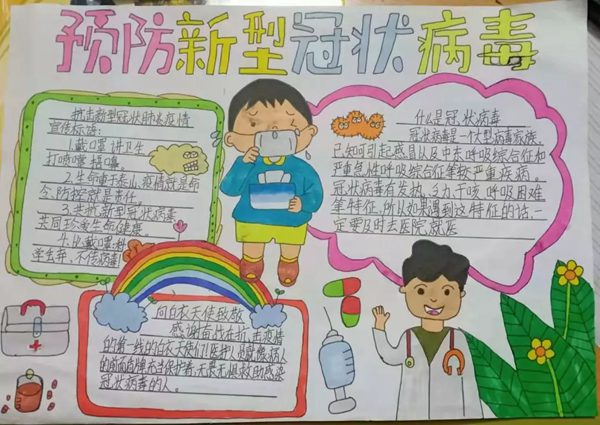 预防新型冠状病毒
抗击新型冠状肺炎疫情
宣传标语:
1.戴口罩讲卫生
打喷嚏捂嘴。
2.生命重于泰山.疫情就是命
令.防控就是责任。
3.共抗新型冠状病毒
共同珍爱生命健康。
4.从戴口罩
不传病毒
什么是冠状病毒
冠状病毒是一个大型病毒家族,
已知可引起感冒以及中东呼吸综合征和
严重急性呼吸综合征等较严重疾病。
冠状病毒有发热、乏力、干咳、呼吸困难
等特征,所以如果遇到这特征的话,一
定要及时去医院就医
向白衣天使致敬
感谢奋战在抗击疫情
的第一线的白衣天使们!医护人
无畏无惧救助感染
冠状病毒的人。